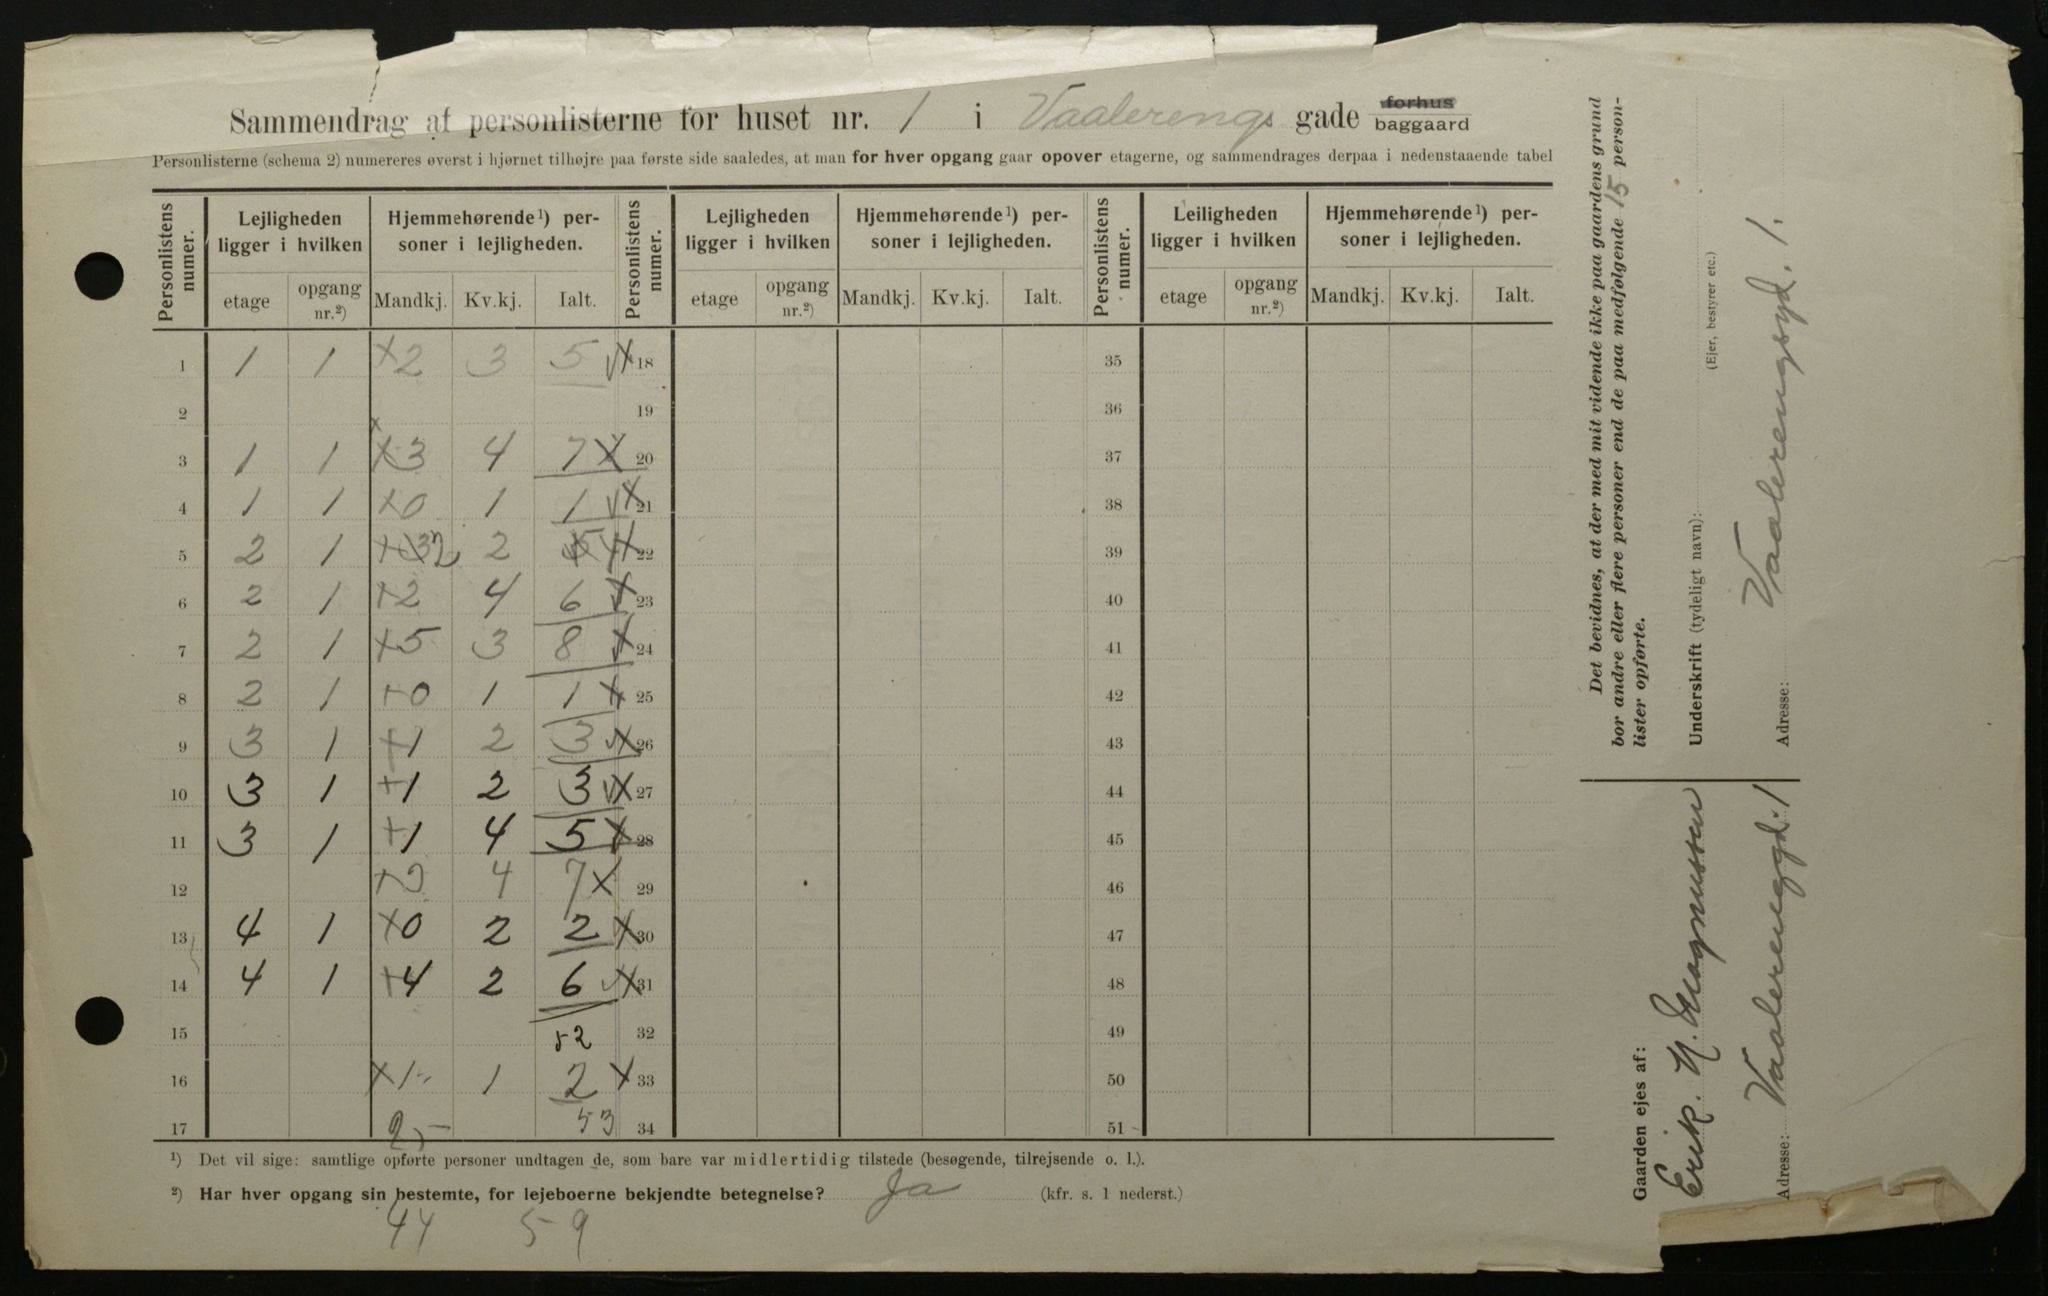 Sammendrag af personlisterne for huset nr. 1 i Vaalerengs gade forhus baggaard
Personlisterne (schema 2) numereres øverst i hjørnet tilhøjre paa første side saaledes, at man for hver opgang gaar opover etagerne, og sammendrages derpaa i nedenstaaende tabel
Personlistens numer. Lejligheden ligger i hvilken Hjemmehørende 1) personer i lejligheden. Personlistens numer. Lejligheden ligger i hvilken Hjemmehørende 1) personer i lejligheden. Personlistens numer. Leiligheden ligger i hvilken Hjemmehørende 1) personer i lejligheden.
etage opgang nr.2) Mandkj. Kv.kj. Ialt. etage opgang nr.2) Mandkj. Kv.kj. Ialt. etage opgang nr.2) Mandkj. Kv.kj. Ialt.
1 1 1 x2 3 5 18 35
2 19 36
3 1 1 x3 4 7 x 20 37
4 1 1 x0 1 1 x 21 38
5 2 1 2 2 22 39
6 2 1 +2 4 6 23 40
7 2 1 x5 3 8 24 41
8 2 1 +0 1 1 x 25 42
9 3 1 +1 2 3 26 43
10 3 1 +1 2 3 27 44
11 3 1 +1 4 5 28 45
12 4 7 x 29 46
13 4 1 x0 2 2 x 30 47
14 4 1 +4 2 6 x 31 48
15 52 32 49
16 x1 1 2 x 33 50
17 53 34 51
1) Det vil sige: samtlige opførte personer undtagen de, som bare var midlertidig tilstede (besøgende, tilrejsende o. l.).
2) Har hver opgang sin bestemte, for lejeboerne bekjendte betegnelse? Ja (kfr. s. 1 nederst.)
44 59
Det bevidnes, at der med mit vidende ikke paa gaardens grund
bor andre eller flere personer end de paa medfølgende 15 person-
lister opførte.
Underskrift (tydeligt navn):
(Ejer, bestyrer etc.)
Adresse: Vaalerengsgd. 1.
Gaarden ejes af:
Erik. N. Magnussen
Adresse: Vaalerenggd. 1